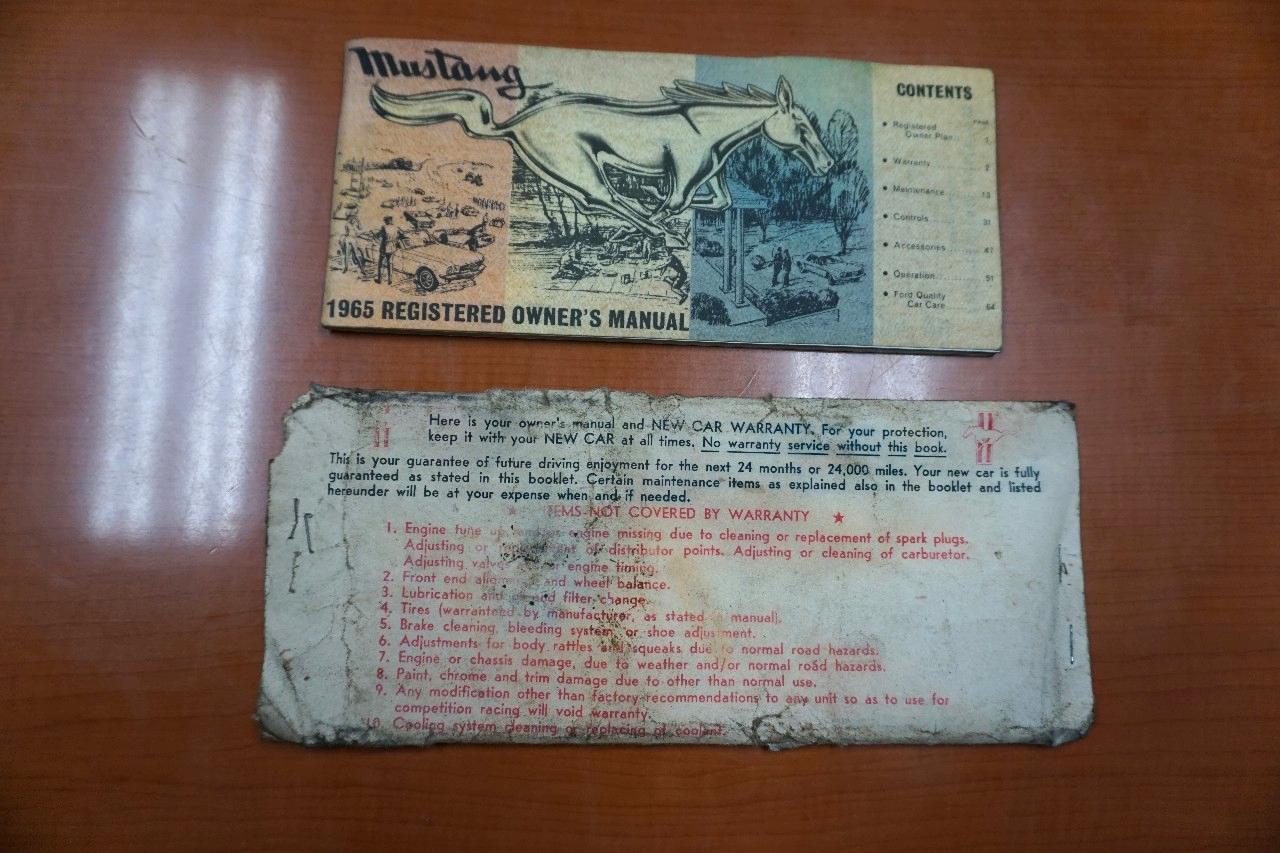 Mustang
1965 REGISTERED OWNER'S MANUAL
CONTENTS
PAGE
• Registered
Owner Plan 1
• Warranty 2
• Maintenance 13
• Controls 31
• Accessories 47
• Operation 51
• Ford Quality
Car Care 64
Here is your owner's manual and NEW CAR WARRANTY. For your protection,
keep it with your NEW CAR at all times. No warranty service without this book.
This is your guarantee of future driving enjoyment for the next 24 months or 24,000 miles. Your new car is fully
guaranteed as stated in this booklet. Certain maintenance items as explained also in the booklet and listed
hereunder will be at your expense when and if needed.
★ ITEMS NOT COVERED BY WARRANTY ★
1. Engine tune up engine missing due to cleaning or replacement of spark plugs.
Adjusting or of distributor points. Adjusting or cleaning of carburetor.
Adjusting engine timing.
2. Front end and wheel balance.
3. Lubrication and filter change.
4. Tires (warranteed by manufacturer, as stated manual).
5. Brake cleaning, bleeding system, or shoe adjustment.
6. Adjustments for body rattles and squeaks due to normal road hazards.
7. Engine or chassis damage, due to weather and/or normal road hazards.
8. Paint, chrome and trim damage due to other than normal use.
9. Any modification other than factory recommendations to any unit so as to use for
competition racing will void warranty.
10. Cooling system cleaning or replacing of coolant.